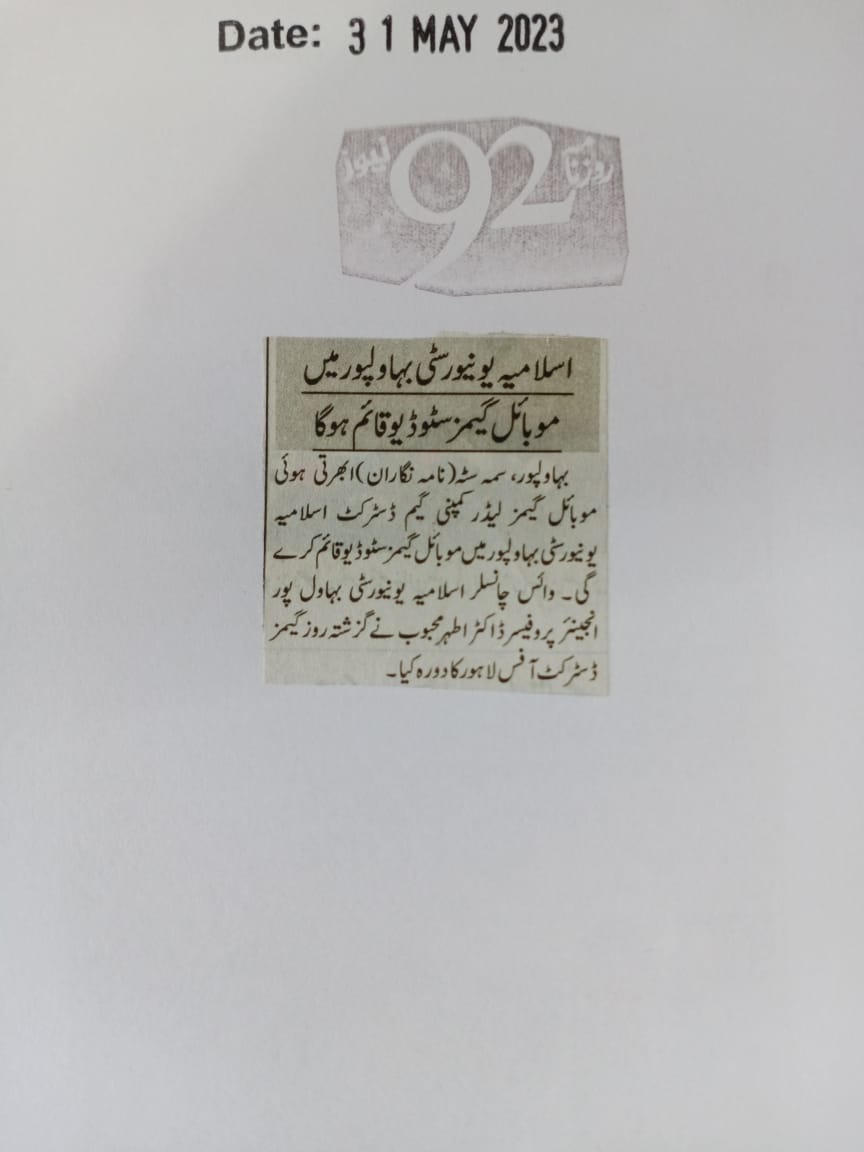 Date: 31 MAY 2023
روزنامہ 92 نیوز
اسلامیہ یونیورسٹی بہاولپور میں
موبائل گیمز سٹوڈیو قائم ہوگا
بہاولپور، سمہ سٹہ (نامہ نگاران) ابھرتی ہوئی
موبائل گیمز لیڈر کمپنی گیم ڈسٹرکٹ اسلامیہ
یونیورسٹی بہاولپور میں موبائل گیمز سٹوڈیو قائم کرے
گی۔ وائس چانسلر اسلامیہ یونیورسٹی بہاول پور
انجینئر پروفیسر ڈاکٹر اطہر محبوب نے گزشتہ روز گیمز
ڈسٹرکٹ آفس لاہور کا دورہ کیا۔